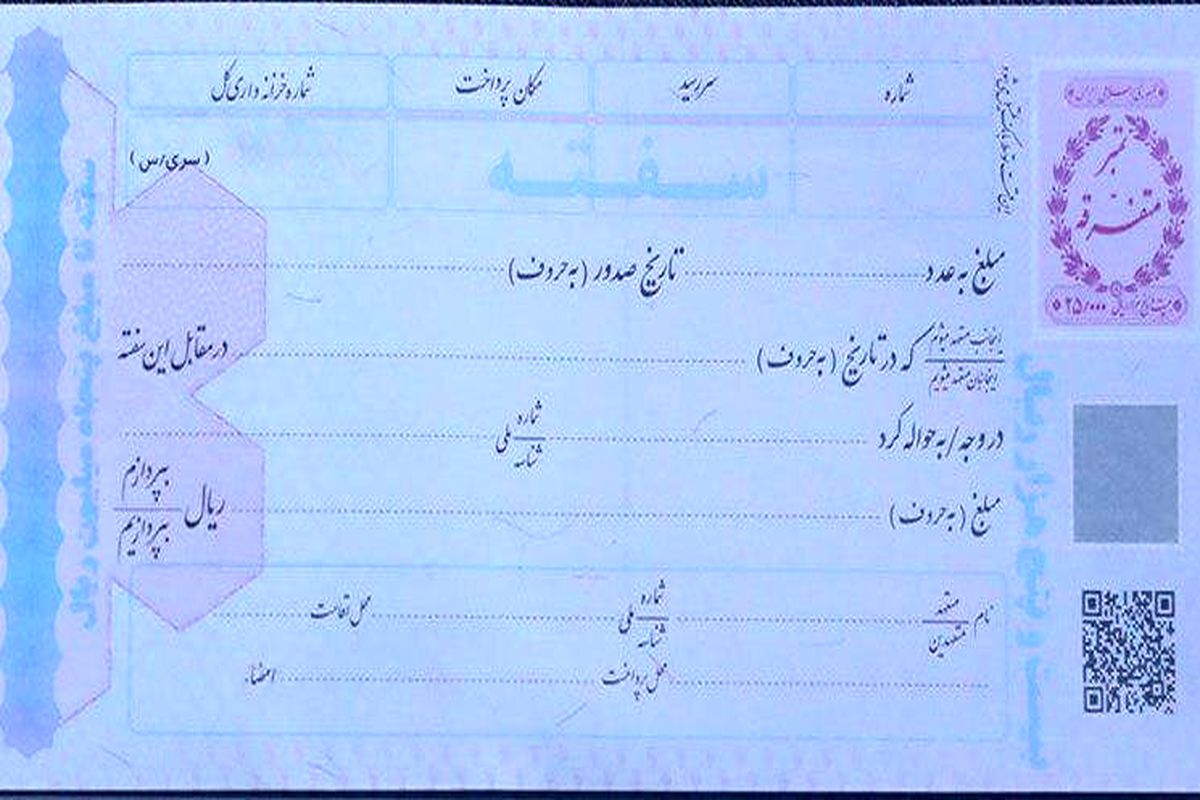 شماره
سررسید
مکان پرداخت
شماره خزانه داری کل
سفته
(سری/س)
مبلغ به عدد تاریخ صدور (به حروف)
اینجانب متعهد میشوم
اینجانبان متعهد میشویم
که در تاریخ (به حروف) در مقابل این سفته
در وجه/به حواله کرد شماره
شناسه ملی
مبلغ (به حروف) ریال بپردازم
بپردازیم
نام متعهد
متعهدین
شماره
شناسه ملی
محل اقامت
محل پرداخت امضاء
جمهوری اسلامی ایران
تمبر
متفرقه
۲۵/۰۰۰
سفته تا مبلغ پنجاه میلیون ریال
بیست و پنج هزار ریال